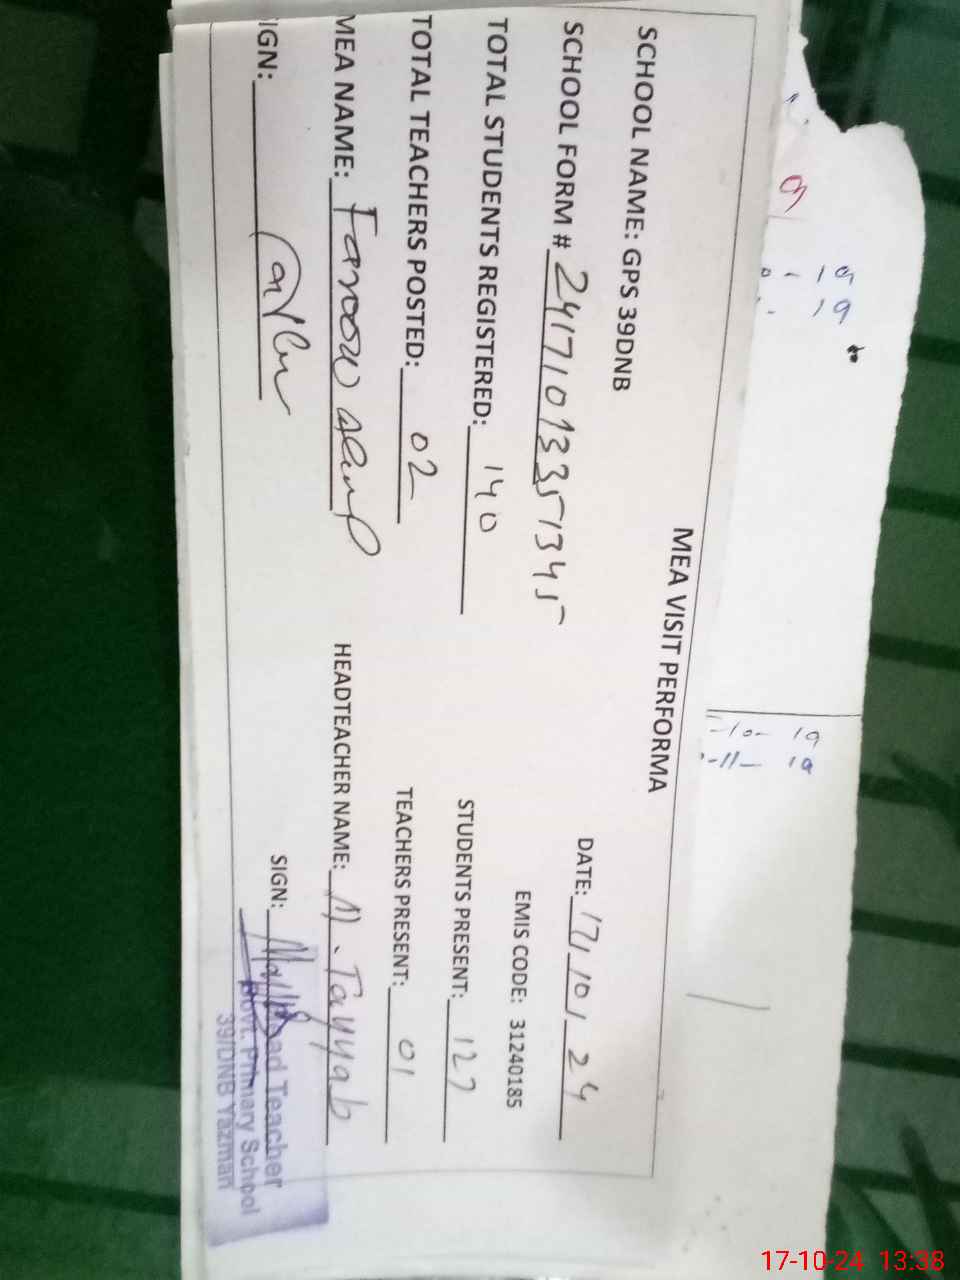 MEA VISIT PERFORMA
SCHOOL NAME: GPS 39DNB
DATE: 17/10/24
SCHOOL FORM # 24171013351345
EMIS CODE: 31240185
TOTAL STUDENTS REGISTERED: 140
STUDENTS PRESENT: 127
TOTAL TEACHERS POSTED: 02
TEACHERS PRESENT: 01
MEA NAME: Farooq
HEADTEACHER NAME: M. Tayyab
IGN:
SIGN:
Head Teacher
Govt. Primary School
39/DNB Yazman
17-10-24 13:38